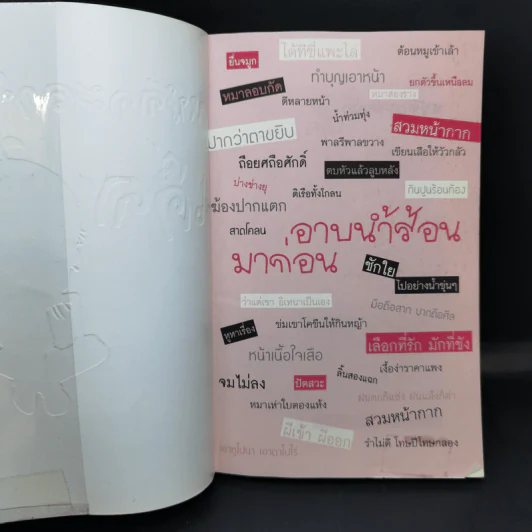 ยื่นจมูก
ได้ทีขี่แพะไล่
ต้อนหมูเข้าเล้า
ทำบุญเอาหน้า
ยกตัวขึ้นเหนือลม
หมาลอบกัด
ตีหลายหน้า
หมาสองราง
น้ำท่วมทุ่ง
ปากว่าตาขยิบ
พาลรีพาลขวาง
สวมหน้ากาก
เขียนเสือให้วัวกลัว
ถือยศถือศักดิ์
ตบหัวแล้วลูบหลัง
บ่างช่างยุ
ติเรือทั้งโกลน
กินปูนร้อนท้อง
ฆ้องปากแตก
สาดโคลน
อาบน้ำร้อน
มาก่อน
ชักใย
ไปอย่างน้ำขุ่นๆ
ว่าแต่เขา อิเหนาเป็นเอง
มือถือสาก ปากถือศีล
หูหาเรื่อง
ข่มเขาโคขืนให้กินหญ้า
เลือกที่รัก มักที่ชัง
หน้าเนื้อใจเสือ
เงื้อง่าราคาแพง
ลิ้นสองแฉก
จมไม่ลง
ปัดสวะ
หมาเห่าใบตองแห้ง
สวมหน้ากาก
ผีเข้า ผีออก
รำไม่ดี โทษปี่โทษกลอง